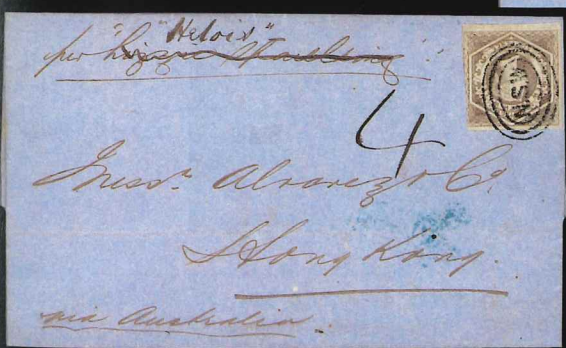 "Helois"
per "Lizzie
4
Messrs. Alvarez & Co.
Hong Kong.
via Australia.
NSW